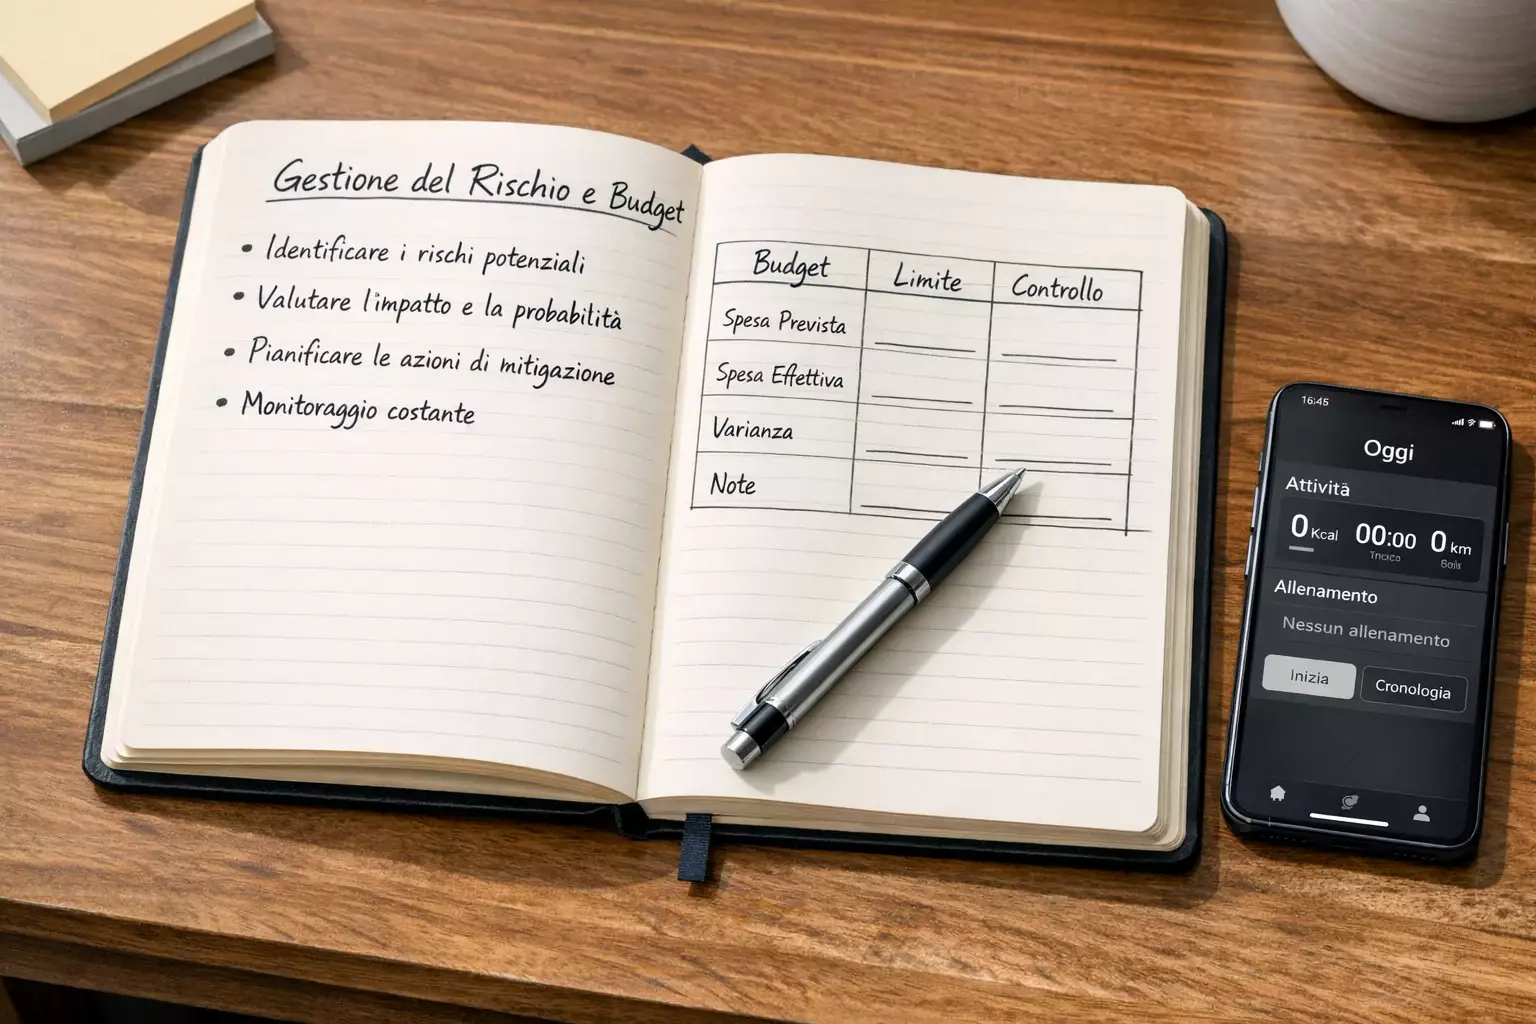 Gestione del Rischio e Budget
• Identificare i rischi potenziali
• Valutare l'impatto e la probabilità
• Pianificare le azioni di mitigazione
• Monitoraggio costante
Budget Limite Controllo
Spesa Prevista
Spesa Effettiva
Varianza
Note
16:45
Oggi
Attività
0 Kcal 00:00 0 km
Allenamento
Nessun allenamento
Inizia Cronologia